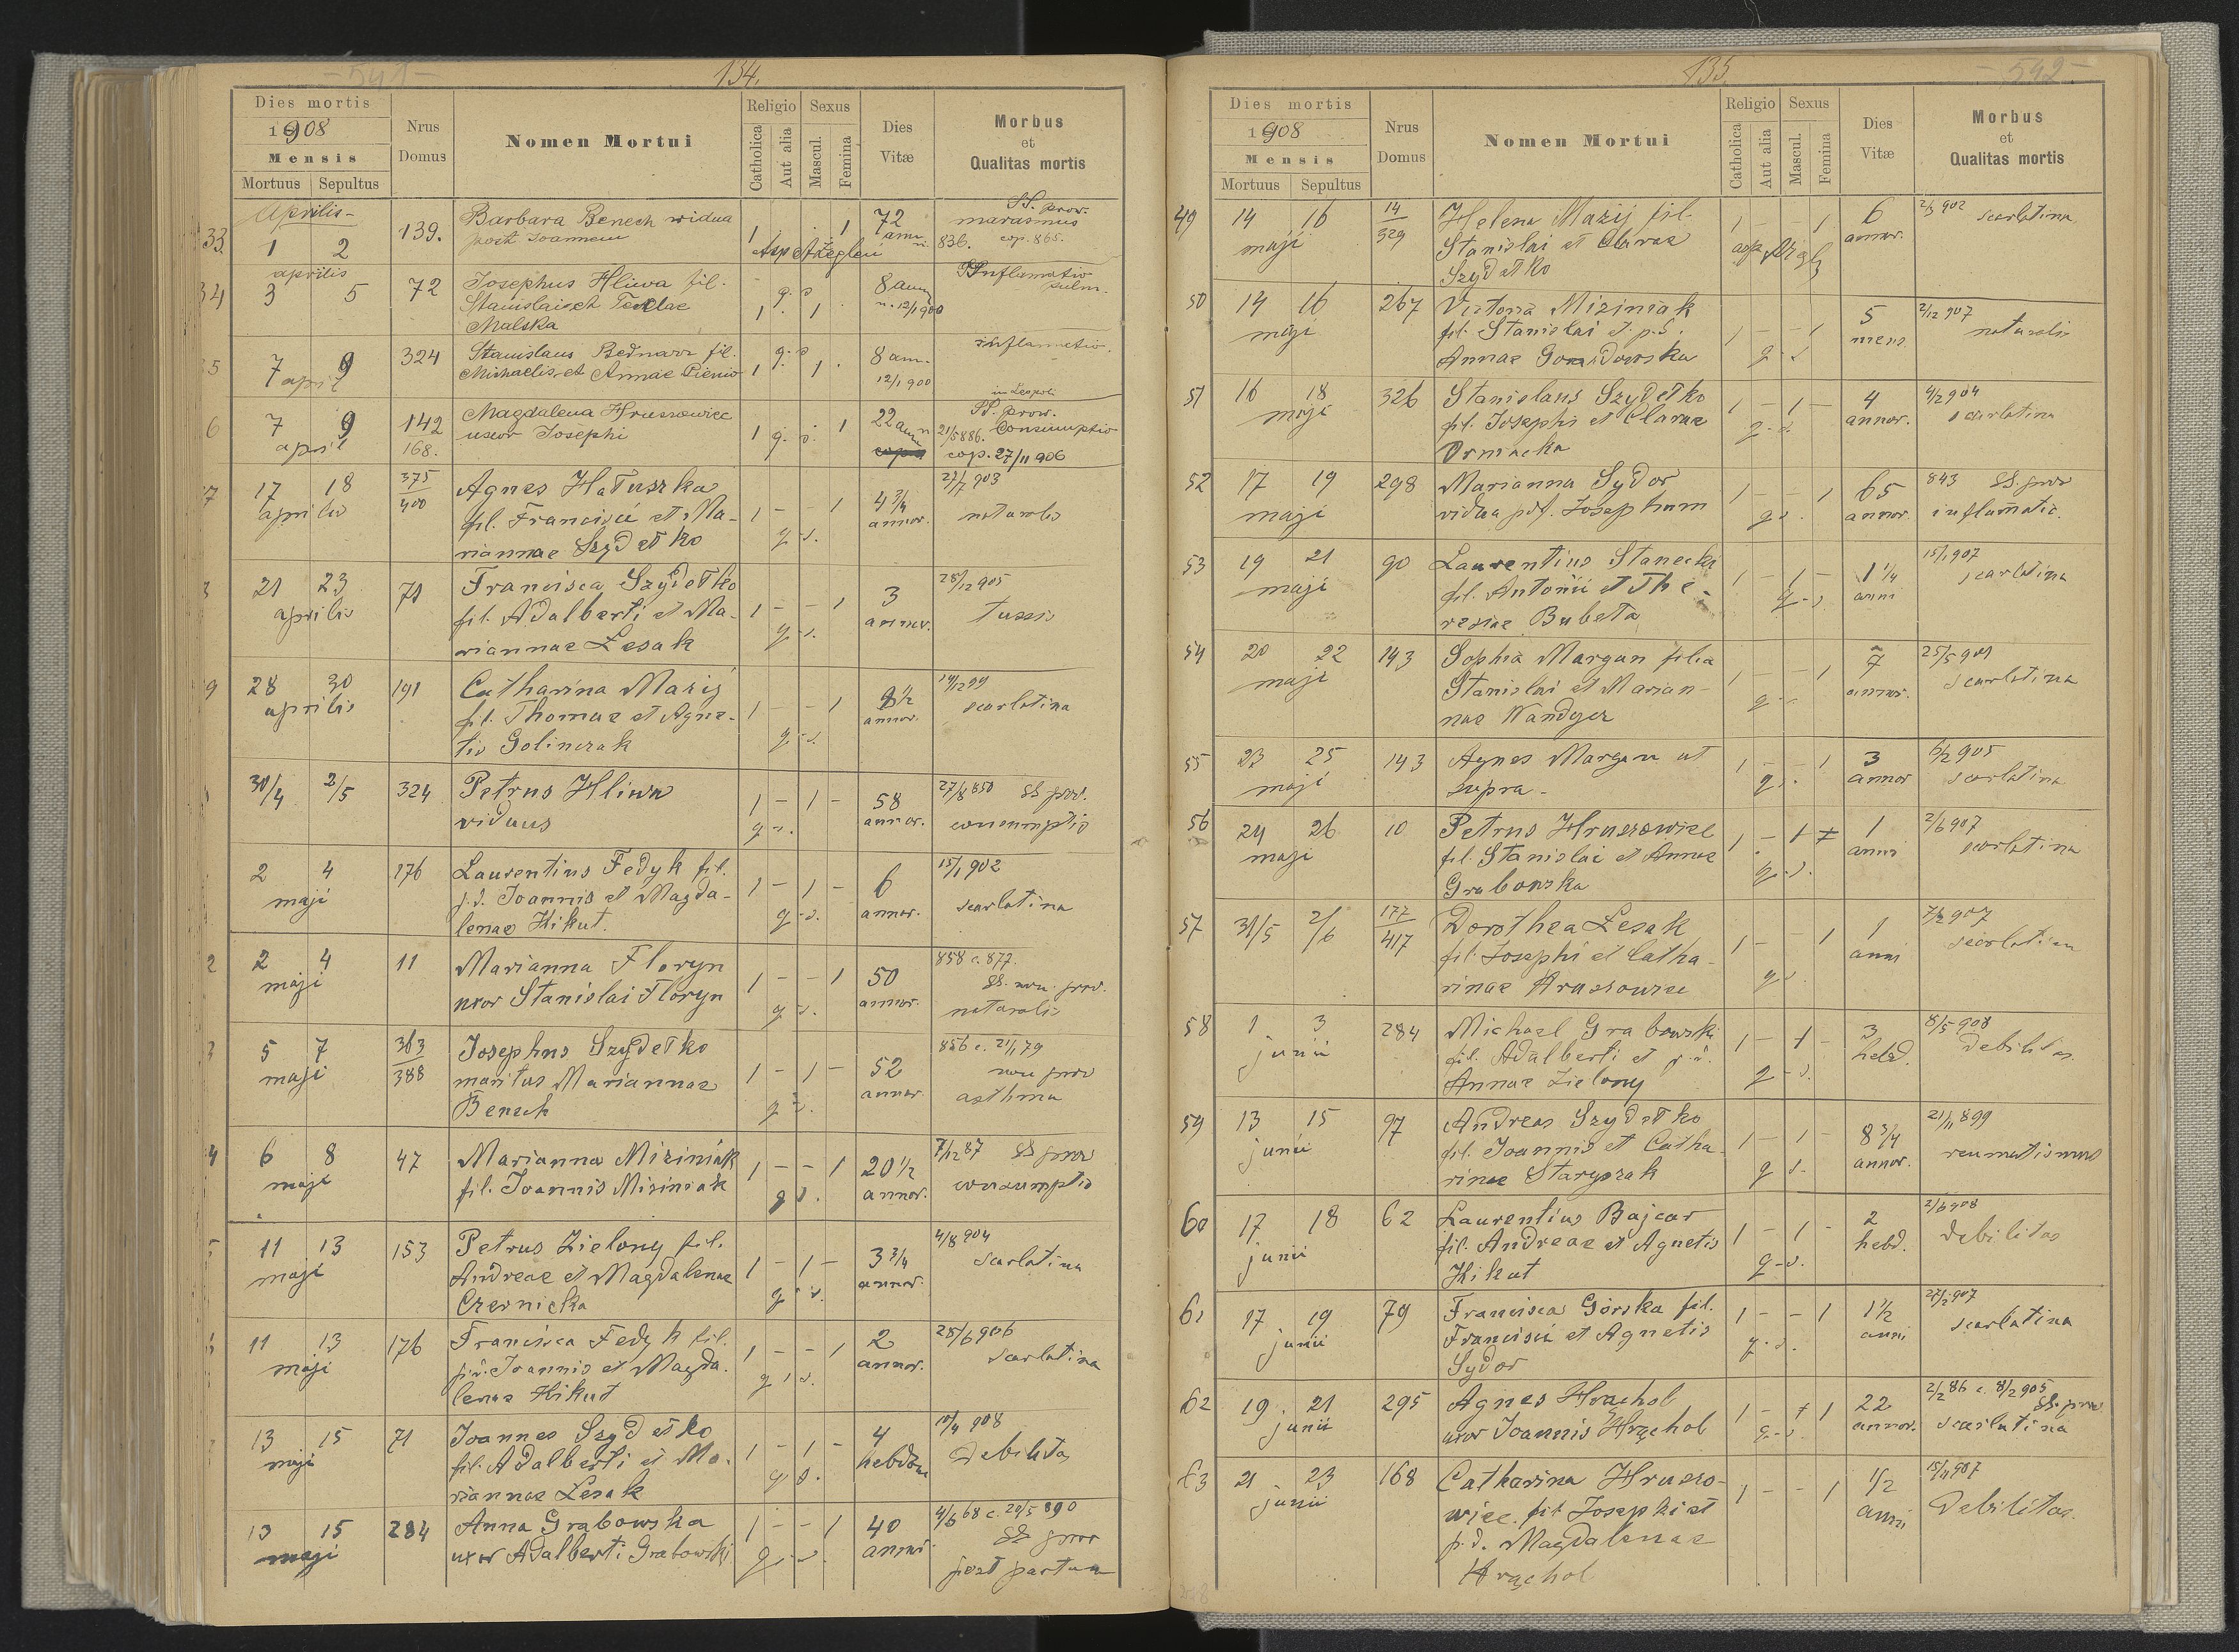 - 541 -
134.
Dies mortis
1908
Mensis
Mortuus Sepultus
Nrus Domus
Nomen Mortui
Religio Sexus
Catholica Aut alia Mascul. Femina
Dies Vitæ
Morbus et Qualitas mortis
Aprilis -
33 1 2 139. Barbara Benech vidua 1 1 72 SS. prov. marasmus
post Joannem 836. cop. 865.
aprilis
34 3 5 72 Josephus Hliwa fil. q. s 8 ann Inflamatio pulm.
Stanislai et Teclae 1 1 n. 12/1 900
Malska
5 7 9 324 Stanislaus Bednarz fil. q. s 8 ann. inflamatio
april Michaelis et Annae Pienio 1 1 12/1 900
in Leopoli
6 7 9 142 Magdalena Hruszowiec 1 q. s. 1 22 ann SS. prov.
april 168. uxor Josephi 21/5 886. Consumptio
cop. 27/11 906
7 17 18 375/400 Agnes Hałuszka 1 - - 1 4 3/4 27/7 903
aprilis fil. Francisci et Ma- q. s. annor. naturalis
riannae Szydełko
8 21 23 71 Francisca Szydełko 1 - - 1 3 28/12 905
aprilis fil. Adalberti et Ma- q. s. annor. tussis
riannae Lesak
9 28 30 191 Catharina Mazij 1 - - 1 8 1/2 19/12 99
aprilis fil. Thomae et Agne- q. s. annor. scarlatina
tis Golinczak
30/4 2/5 324 Petrus Hliwa 1 - 1 - 58 27/8 850 SS prov.
viduus q s. annor. consumptio
2 4 176 Laurentius Fedyk fil. 1 - 1 - 6 15/1 902
maji p.d. Joannis et Magda- q. s. annor. scarlatina
lenae Hikut.
2 2 4 11 Marianna Floryn 1 - - 1 50 858 c. 877.
maji uxor Stanislai Floryn q s. annor. SS. non prov.
naturalis
3 5 7 363/388 Josephus Szydełko 1 - 1 - 52 856 c. 21/1 79
maji maritus Mariannae q s. annor. non prov
Benech asthma
4 6 8 47 Marianna Miziniak 1 - - 1 20 1/2 7/12 87 SS prov
maji fil. Joannis Miziniak q s. annor. consumptio
5 11 13 153 Petrus Zielony fil. 1 - 1 - 3 3/4 4/8 904
maji Andreae et Magdalenae q. s. annor. scarlatina
Czernicka
11 13 176 Francisca Fedyk fil. 1 - - 1 2 28/6 906
maji p.d. Joannis et Magda- q. s. annor. scarlatina
lenae Hikut
13 15 71 Joannes Szydełko 1 - 1 - 4 10/4 908
maji fil. Adalberti et Ma- q s. hebdom Debilitas
riannae Lesak
13 15 284 Anna Grabowska 1 - - 1 40 4/6 68 c. 20/5 890
maji uxor Adalberti Grabowski q. s. annor. SS prov
post partum
135.
- 542 -
Dies mortis
1908
Mensis
Mortuus Sepultus
Nrus Domus
Nomen Mortui
Religio Sexus
Catholica Aut alia Mascul. Femina
Dies Vitæ
Morbus et Qualitas mortis
49 14 16 14/329 Helena Mazij fil. 1 - - 1 6 2/3 902 scarlatina
maji Stanislai et Clarae annor.
Szydełko
50 14 16 267 Victoria Miziniak 1 - - 1 5 2/12 907
maji fil. Stanislai et p.d. q. s mens naturalis
Annae Gorndowska
51 16 18 326 Stanislaus Szydełko 1 - 1 - 4 4/2 904
maji fil. Josephi et Clarae q. s. annor. scarlatina
Ormacka
52 17 19 298 Marianna Sydor 1 - - 1 65 843 SS. prov
maji vidua pst. Josephum q s. annor. inflamatio
53 19 21 90 Laurentius Stanecki 1 - 1 - 1 1/4 15/1 907
maji fil. Antonii et The- q. s anni scarlatina
resiae Bubeła
54 20 22 143 Sophia Margan filia 1 - - 1 7 25/5 901
maji Stanislai et Marian- q. s. annor. scarlatina
nae Wandycz
55 23 25 143 Agnes Margan ut 1 - - 1 3 6/2 905
maji supra - q s. annor scarlatina
56 24 26 10 Petrus Hruszowiec 1 - 1 1 2/6 907
maji fil. Stanislai et Annae q. s. anni scarlatina
Grabowska
57 31/5 2/6 177/417 Dorothea Lesak 1 - 1 1 7/2 907
fil. Josephi et Catha- q s anni scarlatina
rinae Hruszowiec
58 1 3 284 Michael Grabowski 1 - 1 - 3 8/5 908
junii fil. Adalberti et p.d. q - s. hebd. Debilitas.
Annae Zielony
59 13 15 97 Andreas Szydełko 1 - 1 - 8 3/4 21/11 899
junii fil. Joannis et Catha- q s. annor. reumatismus
rinae Staryszak
60 17 18 62 Laurentius Bajcar 1 - 1 - 2 2/6 908
junii fil. Andreae et Agnetis q - s. hebd. Debilitas
Hikut
61 17 19 79 Francisca Górska fil. 1 - - 1 1 1/2 27/2 907
junii Francisci et Agnetis q. s. anni scarlatina
Sydor
62 19 21 295 Agnes Hrąchol 1 - 1 22 2/2 86 c. 8/2 905
junii uxor Joannis Hrąchol q. s annor. SS. prov scarlatina
63 21 23 168 Catharina Hruszo- 1 - - 1 1/2 15/11 907
junii wiec. fil Josephi et anni Debilitas.
p. d. Magdalenae
Hrąchol